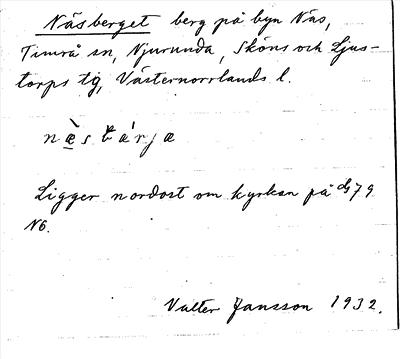 Näsberget berg på byn Näs,
Timrå sn, Njurunda, Sköns och Ljus-
torps tg, Västernorrlands l.
næ̀sbǽrjæ
Ligger nordost om kyrkan på 79
N6.
Valter Jansson 1932.